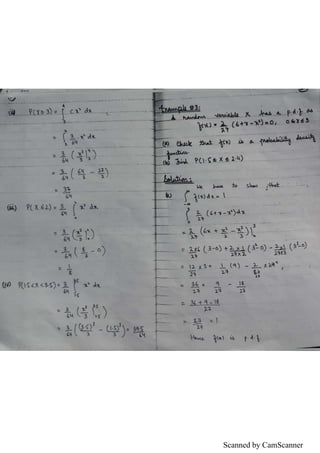 (ii) P(X>3) = ∫₃⁴ c x² dx
= ∫₃⁴ 3/64 x² dx
= 3/64 (x³/3 |₃⁴)
= 3/64 (64/3 - 27/3)
= 37/64
(iii) P(X≤2) = 3/64 ∫₀² x² dx
= 3/64 (x³/3 |₀²)
= 3/64 (8/3 - 0)
= 1/8
(iv) P(1.5<X<3.5) = 3/64 ∫ x² dx
= 3/64 (x³/3 |)
= 3/64 ((3.5)³/3 - (1.5)³/3) =
Example #3:
A random variable X has a p.d.f as
f(x) = 2/27 (6+x-x²) = 0, 0≤x≤3
(a) Check that f(x) is a probability density
function
(b) Find P(1.5≤X≤2.4)
Solution:
We have to show that
∫ f(x) dx = 1
∫₀³ 2/27 (6+x-x²) dx
= 2/27 (6x + x²/2 - x³/3) |₀³
= 2x6/27 (3-0) + 2x1/27x2 (3²-0) - 2x1/27x3 (3³-0)
= 12/27 x 3 + 1/27 (9) - 2
= 36/27 + 9/27 - 18/27
= 36+9-18/27
= 27/27 = 1
Hence f(x) is p.d.f
Scanned by CamScanner